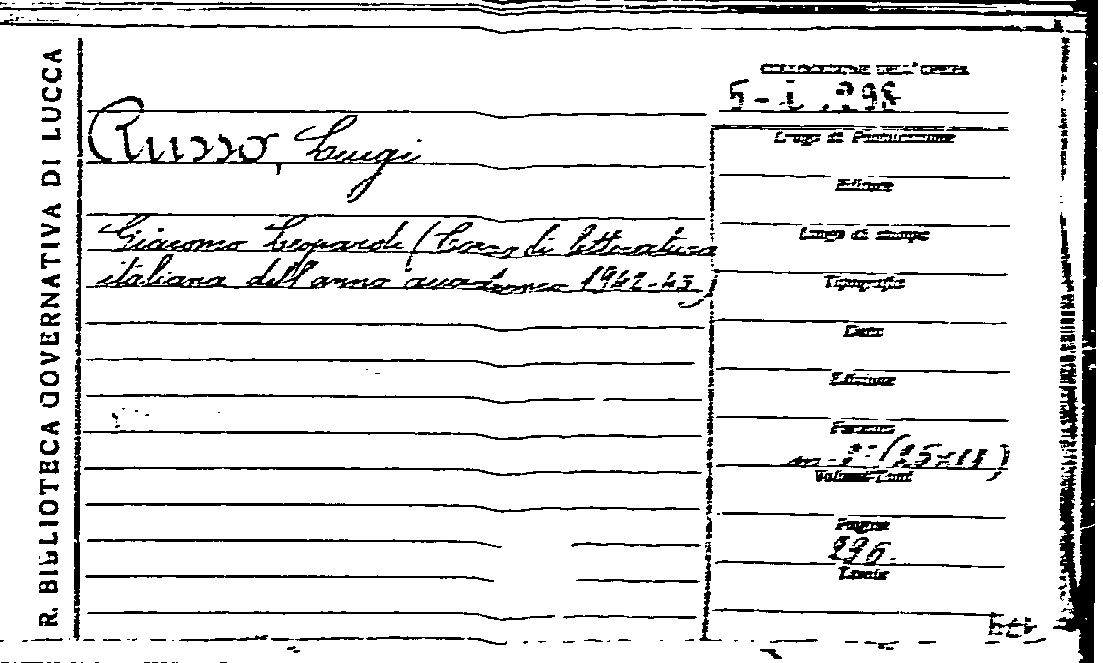 R. BIBLIOTECA GOVERNATIVA DI LUCCA
Russo, Luigi
Giacomo Leopardi (Corso di letteratura
italiana dell'anno accademico 1942-43)
COLLOCAZIONE DELL'OPERA
5-i.298
Luogo di Pubblicazione
Editore
Luogo di stampa
Tipografia
Data
Edizione
Formato
in-8° (25x18)
Volumi-Tomi
Pagine
296.
Tavole